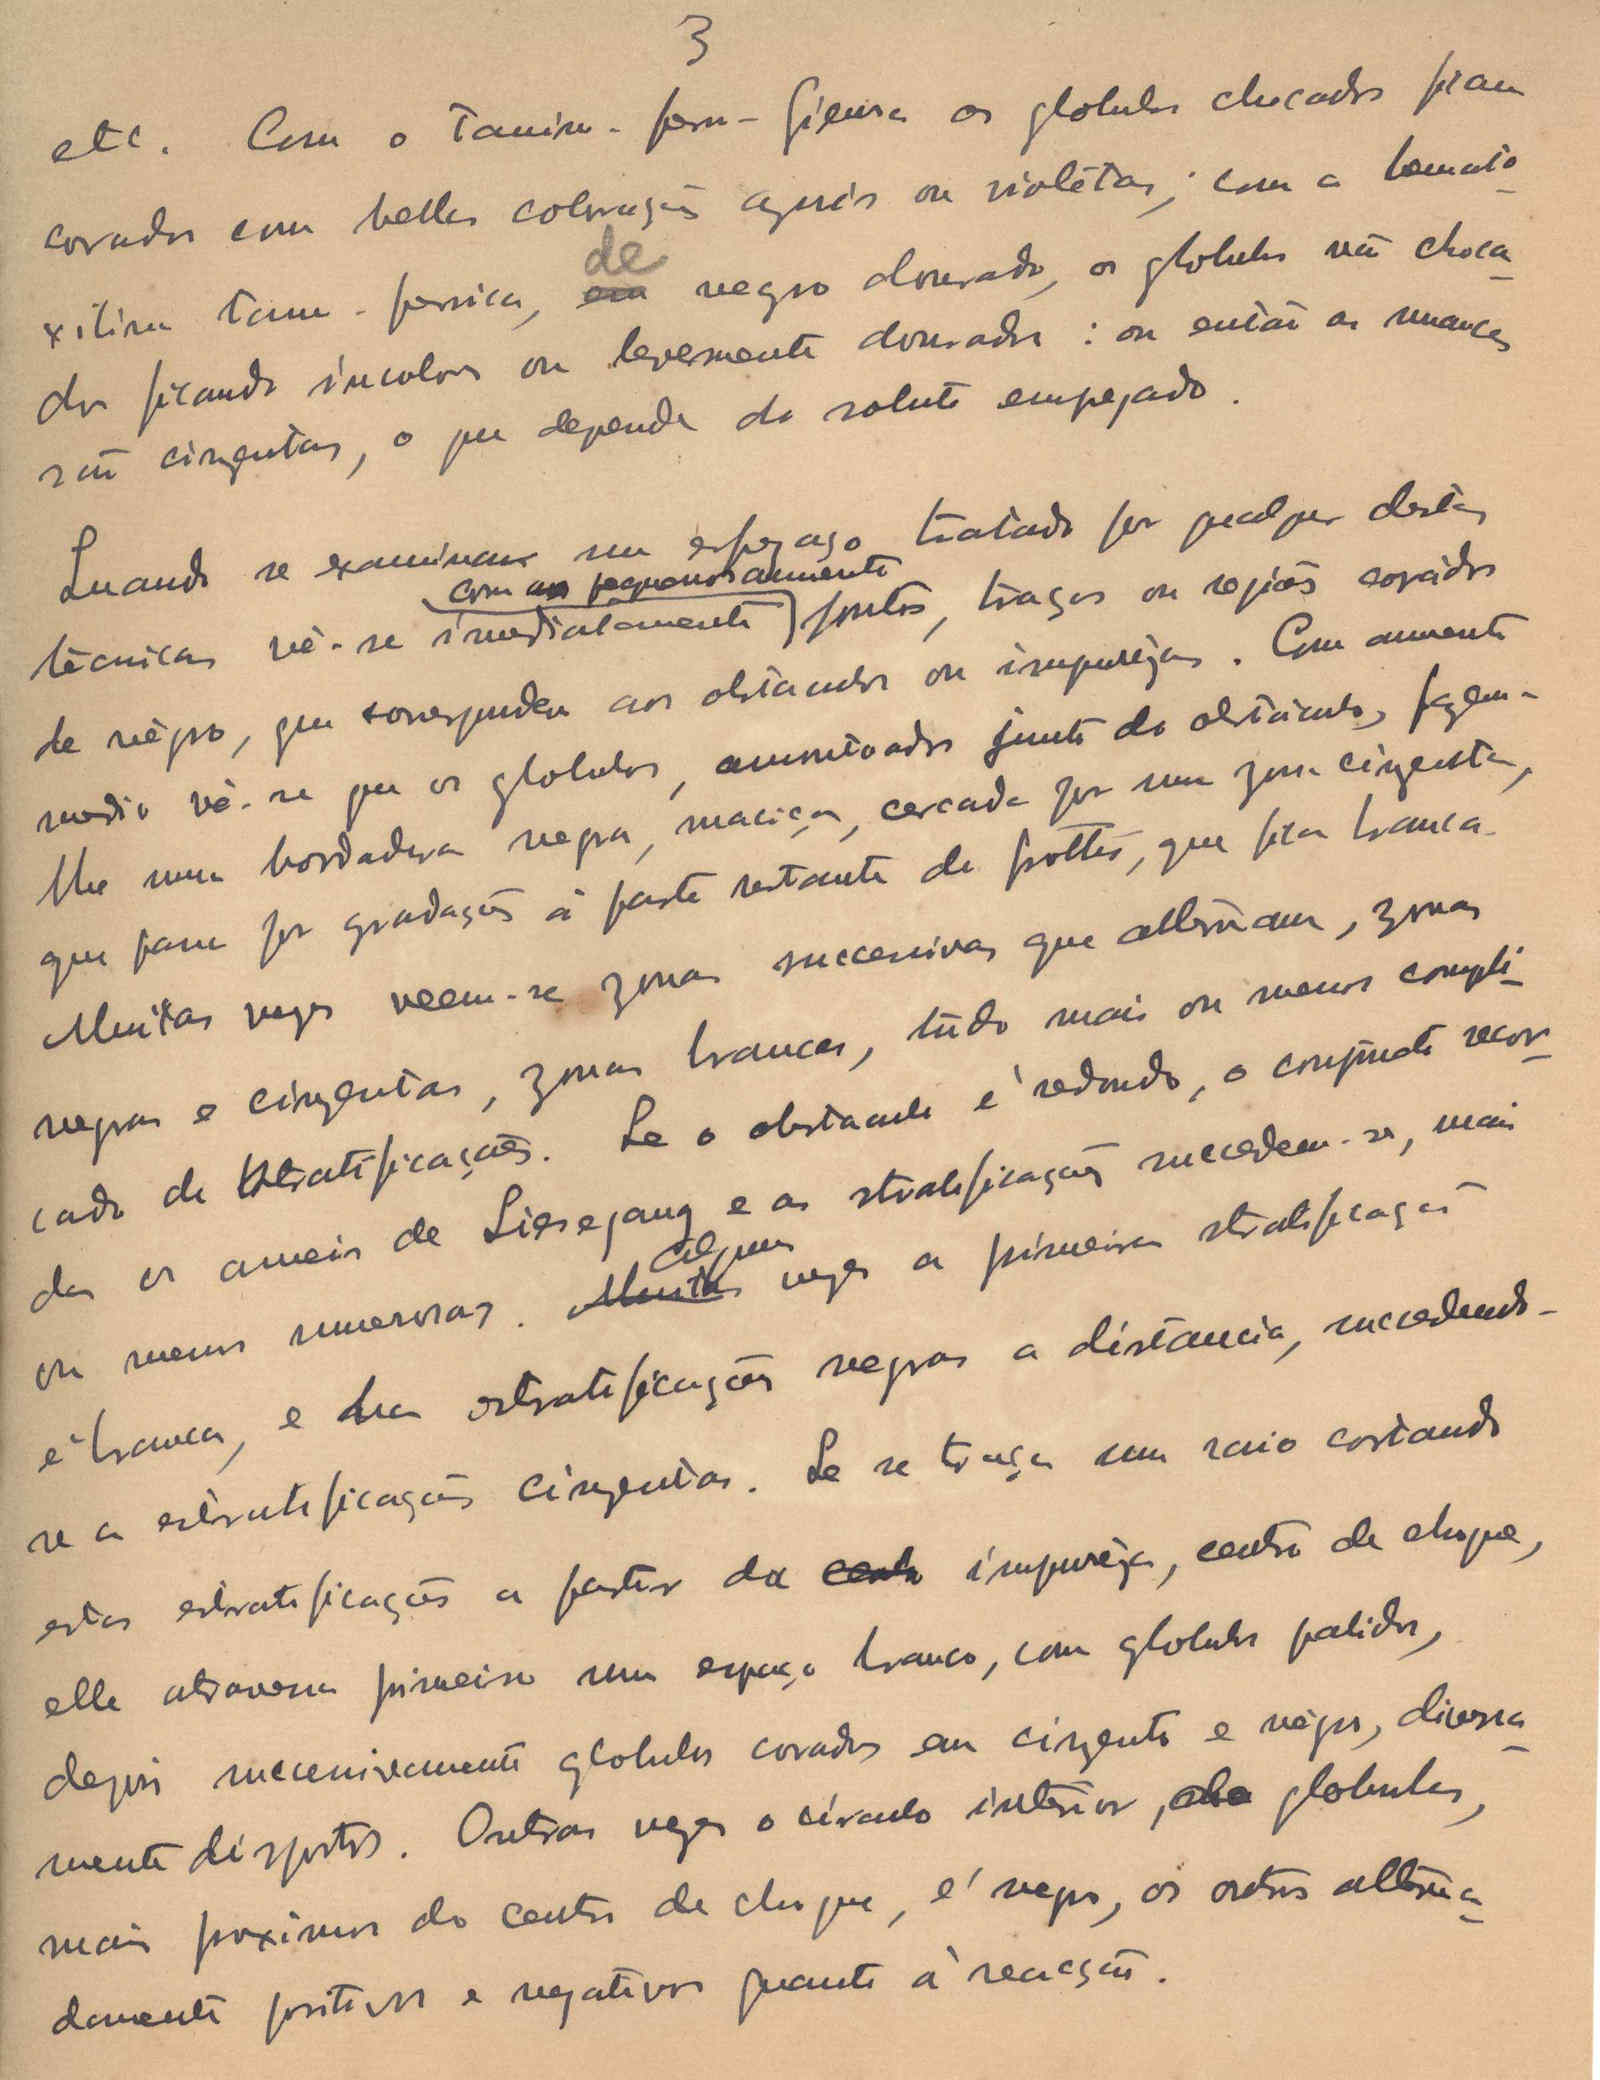 3
etc. Com o tanino-ferri-fucsina os globulos chocados ficam
corados com bellas colorações azuis ou violetas; com a hemato-
xilina tano-ferrica, de
em negro dourado, os globulos vão choca-
dos ficando incolores ou levemente dourados : ou então as nuances
são cinzentas, o que depende do soluto empregado.
Quando se examinar um esfregaço tratado por qualquer destas
com os pequenos aumentos
tecnicas vê-se imediatamente pontos, traços ou regiões coradas
de negro, que correspondem aos obstaculos ou impurezas. Com aumento
medio vê-se que os globulos, amontoados junto do obstaculo, fazem-
lhe uma bordadura negra, maciça, cercada por uma zona cinzenta,
que passa por gradações á parte restante do frottis, que fica branca.
Muitas vezes veem-se zonas successivas que alternam, zonas
negras e cinzentas, zonas brancas, tudo mais ou menos compli-
cado de estratificações. Se o obstaculo é redondo, o conjunto recor-
da os aneis de Liesegang e as stratificações succedem-se, mais
ou menos numerosas. Algumas
Muitas vezes a primeira stratificação
é branca, e as estratificações negras a distancia, succedendo-
se a estratificações cinzentas. Se se traça um raio cortando
estas estratificações a partir da cento impureza, centro de choque,
elle atravessa primeiro um espaço branco, com globulos palidos,
depois successivamente globulos corados em cinzento e negro, diversa-
mente dispostos. Outras vezes o circulo interior, globulos,
mais proximos do centro de choque, é negro, os outros alterna-
damente positivos e negativos quanto á reacção.